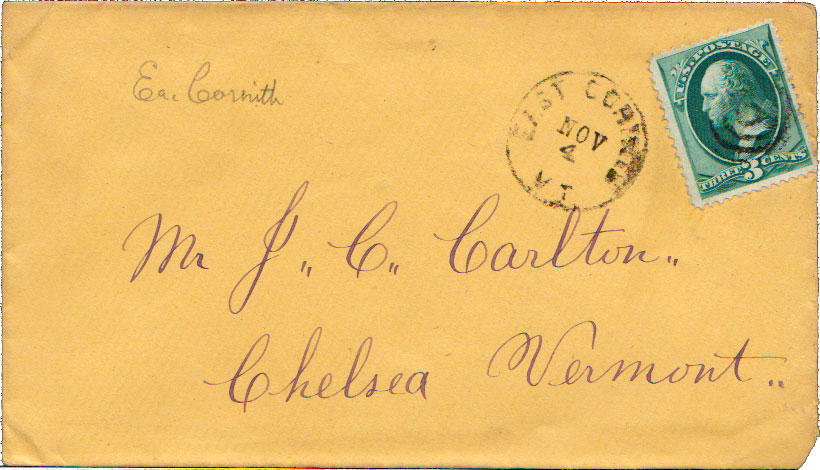 Ea. Cornith
EAST CORINTH
NOV
4
VT
U.S. POSTAGE
THREE 3 CENTS
Mr J „ C „ Carlton „
Chelsea Vermont „